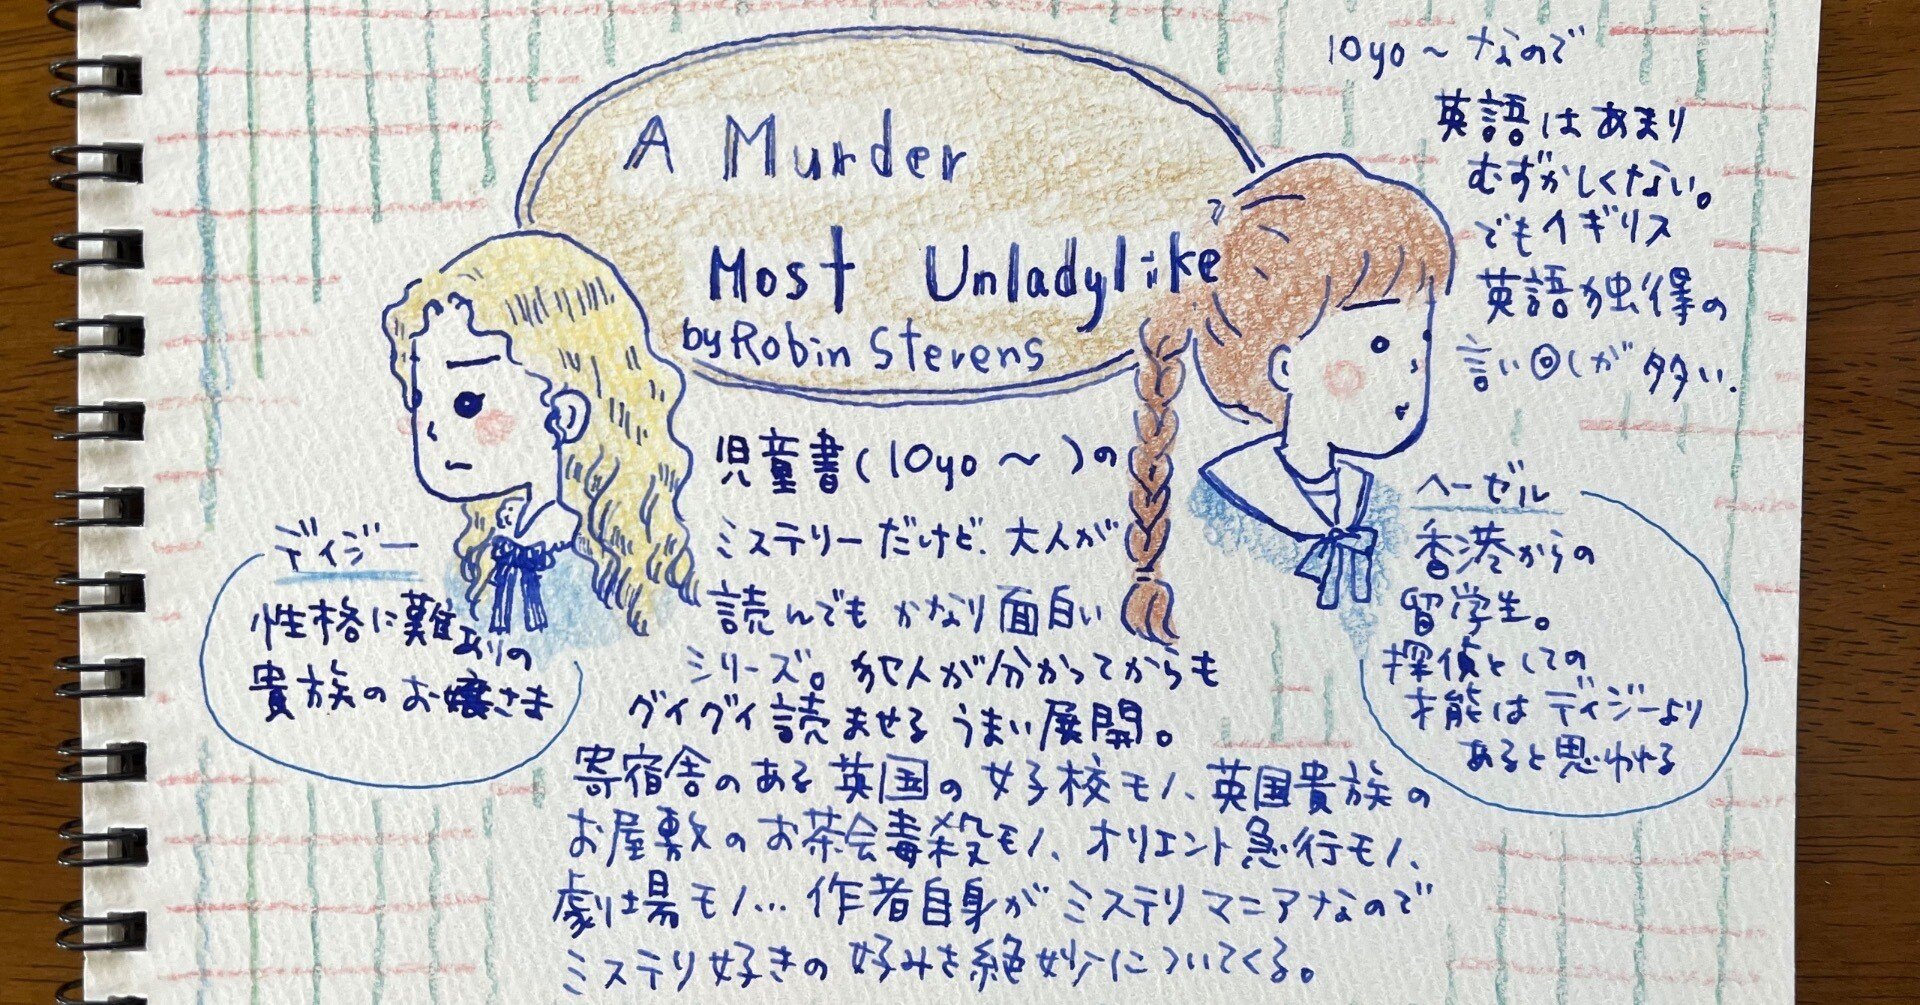 A Murder
Most Unladylike
by Robin Stevens
10yo～なので
英語はあまり
むずかしくない。
でもイギリス
英語独得の
言い回しが多い.
児童書(10yo～)の
ミステリーだけど、大人が
読んでもかなり面白い
シリーズ。犯人が分かってからも
グイグイ読ませるうまい展開。
寄宿舎のある英国の女子校モノ、英国貴族の
お屋敷のお茶会毒殺モノ、オリエント急行モノ、
劇場モノ…作者自身がミステリマニアなので
ミステリ好きの好みを絶妙についてくる。
ディジー
性格に難ありの
貴族のお嬢さま
ヘーゼル
香港からの
留学生。
探偵としての
才能はディジーより
あると思われる